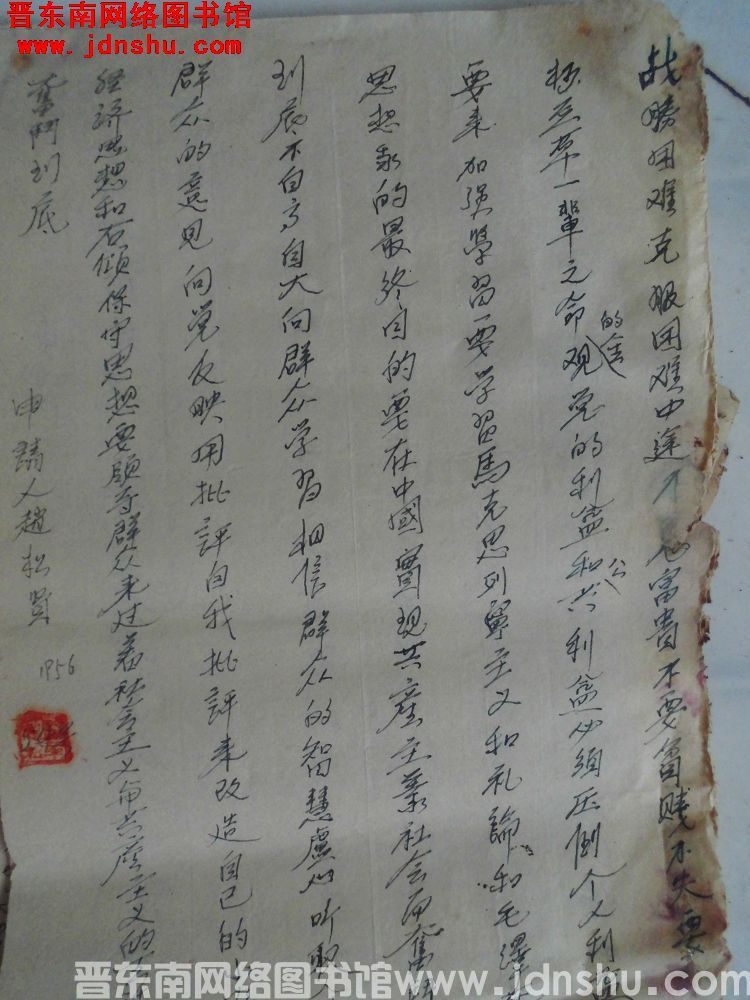 晋东南网络图书馆
www.jdnshu.com
战胜困难克服困难中途不富贵不要贫贱不失要
一辈之命的党的利益和公共利益必须压倒个人利
要来加强学习要学习馬克思列寧主义和礼論和毛澤
思想的最终目的要在中國實现共產主義社会而奮
到底不自高自大向群众学习相信群众的智慧虚心听取
群众的意见向党反映用批評自我批評来改造自己的
经济思想和右倾保守思想要領导群众来过着社会主义和共產主义的
奮鬥到底
申請人趙松賢
1956
晋东南网络图书馆 www.jdnshu.com